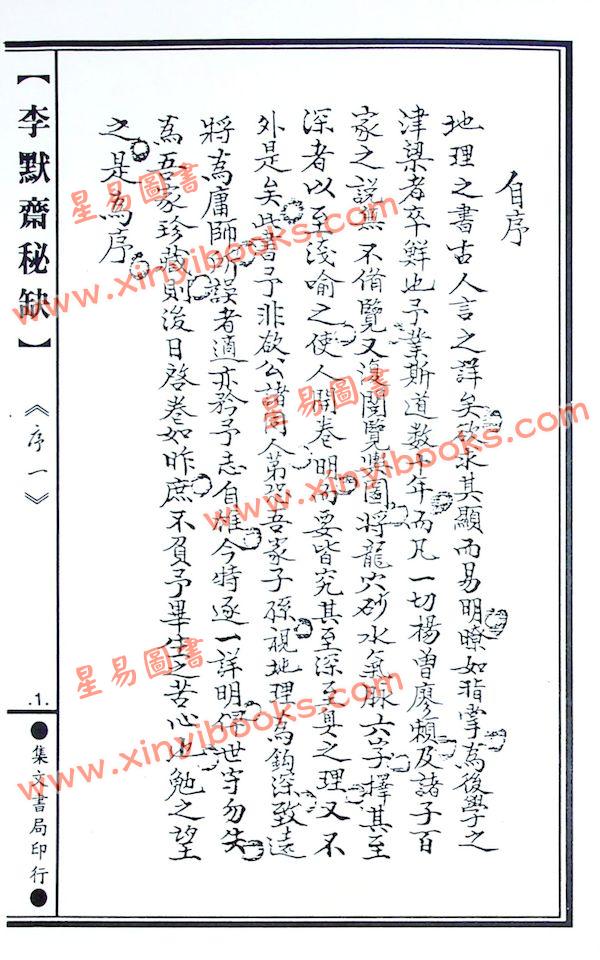 自序
地理之書古人言之詳矣欲求其顯而易明瞭如指掌為後學之
津梁者卒鮮也予業斯道数十年而凡一切楊曾廖賴及諸子百
家之說無不備覽又復閱覽輿圖將龍穴砂水氣脉六字擇其至
深者以至淺喻之使人開卷明而要皆究其至深至真之理又不
外是矣此書予非欲公諸同人第恐吾家子孫視地理為鈎深致遠
將為庸師所誤者適亦矜予志自雄今特逐一詳明俾世守勿失
為吾家珍藏則後日啓卷如昨庶不負予畢生之苦心也勉之望
之是為序
【李默齋秘缺】
《序一》
.1.
●集文書局印行●
星易圖書
www.xinyibooks.com
星易圖書
www.xinyibooks.com
星易圖書
www.xinyibooks.com